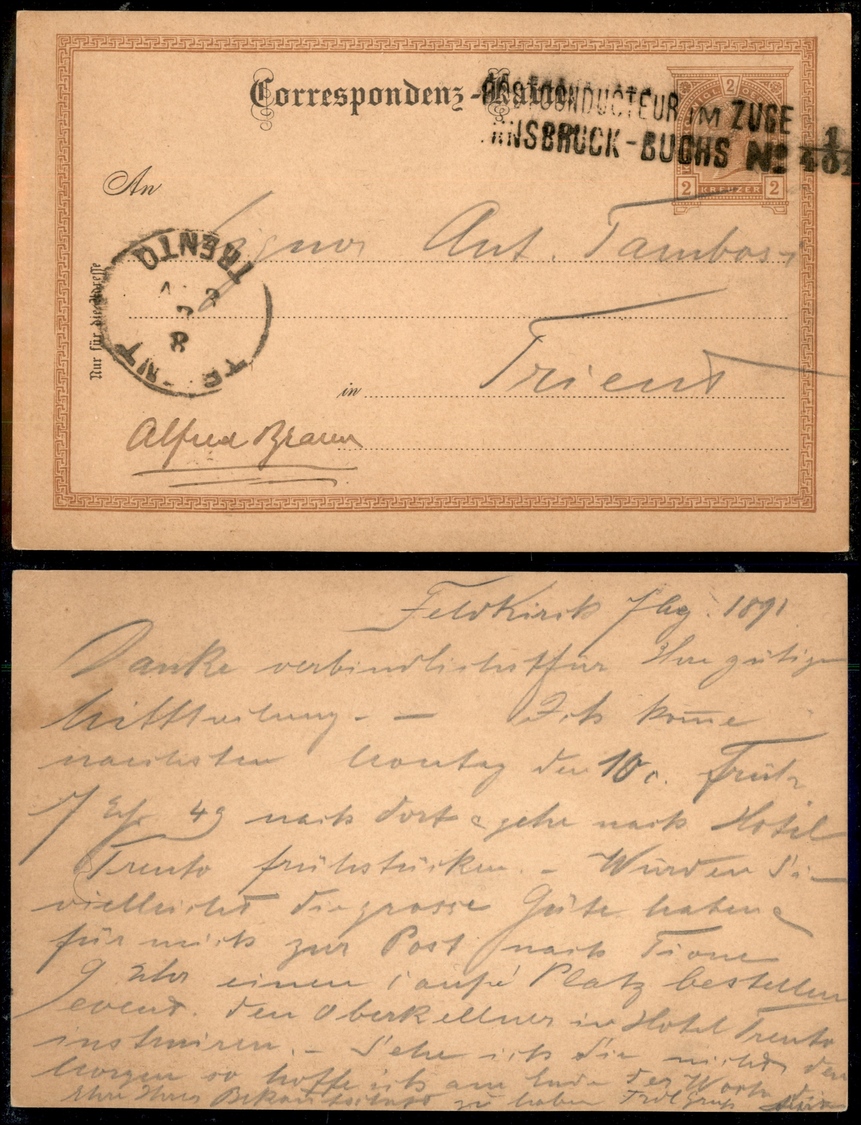 Correspondenz-Karte
POSTCONDUCTEUR IM ZUGE
INNSBRUCK-BUCHS No
2
2 KREUZER 2
An
Signor Ant. Tambosi
TRENTO
8
TRIENT
Nur für die Adresse
in Trient
Alfred Braun
Feldkirch 1891
Danke verbindlichst für Ihre gütige
Mittheilung. — Ich komme
nächsten Montag den 10. c. Früh
7 Uhr 49 nach dort & gehe nach Hotel
Trento frühstücken. — Würden Sie
vielleicht die grosse Güte haben &
für mich zur Post nach Tione
9 Uhr einen Coupé Platz bestellen
event. den Oberkellner in Hotel Trento
instruiren. — Sehe ich Sie nicht den
Morgen so hoffe ich am Ende der Woche die
Ehre Ihrer Bekanntschaft zu haben